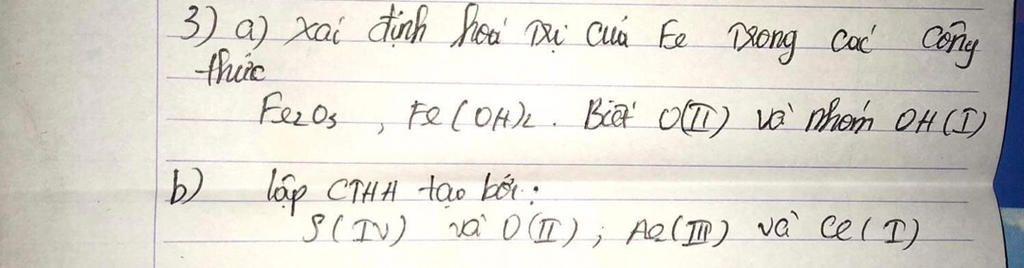 3) a) Xác định hoá trị của Fe trong các công
thức
Fe2O3, Fe(OH)2. Biết O(II) và nhóm OH(I)
b) lập CTHH tạo bởi:
S(IV) và O(II); Al(III) và Cl(I)